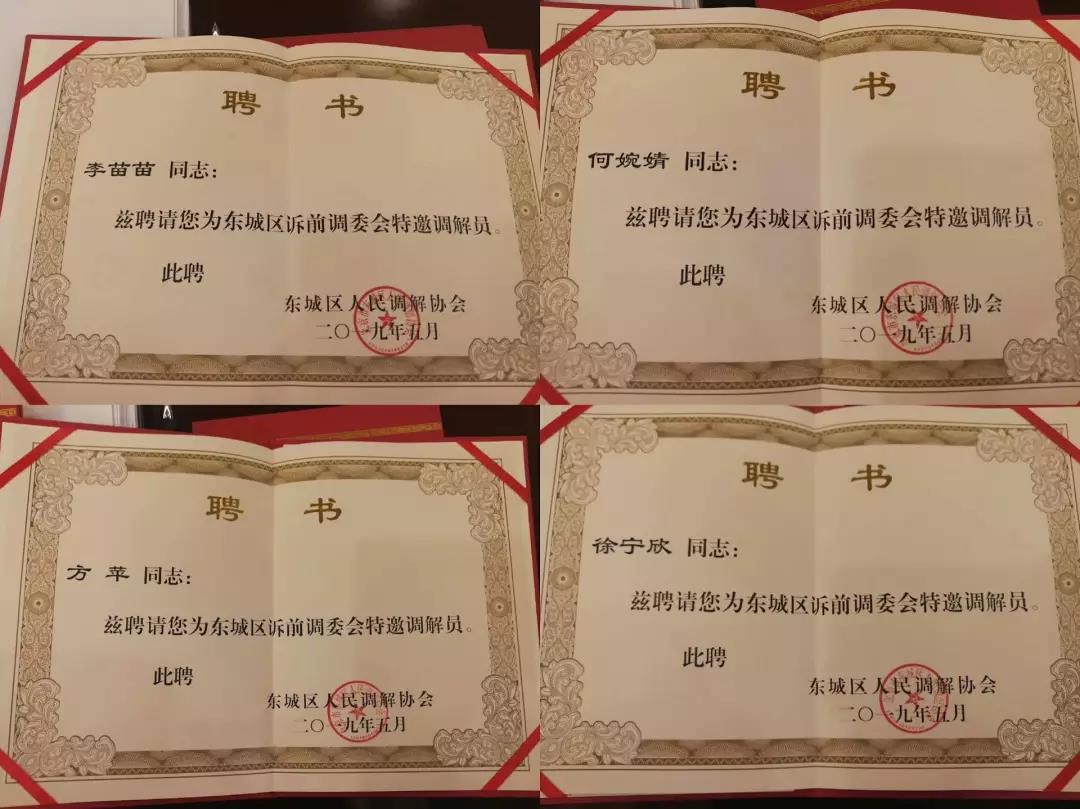 聘 书
李苗苗 同志：
兹聘请您为东城区诉前调委会特邀调解员。
此聘
东城区人民调解协会
二〇一九年五月
聘 书
何婉婧 同志：
兹聘请您为东城区诉前调委会特邀调解员。
此聘
东城区人民调解协会
二〇一九年五月
聘 书
方 苹 同志：
兹聘请您为东城区诉前调委会特邀调解员。
此聘
东城区人民调解协会
二〇一九年五月
聘 书
徐宁欣 同志：
兹聘请您为东城区诉前调委会特邀调解员。
此聘
东城区人民调解协会
二〇一九年五月